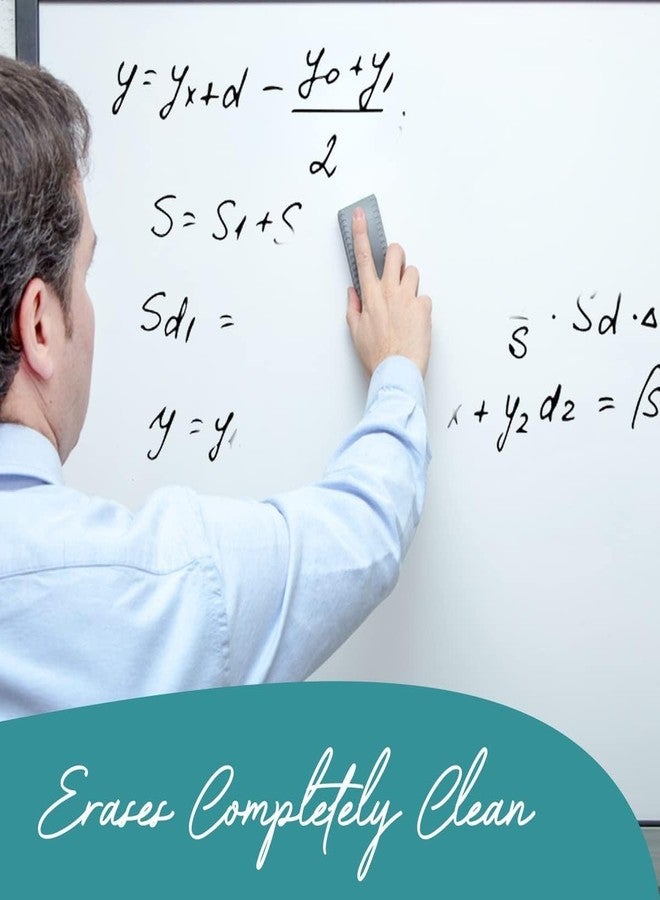 y = yx+d - (y0 + y1)/2
S = S1 + S
Sd1 =
y = y1
S · Sd · Δ
x + y2 d2 = 
Erases Completely Clean